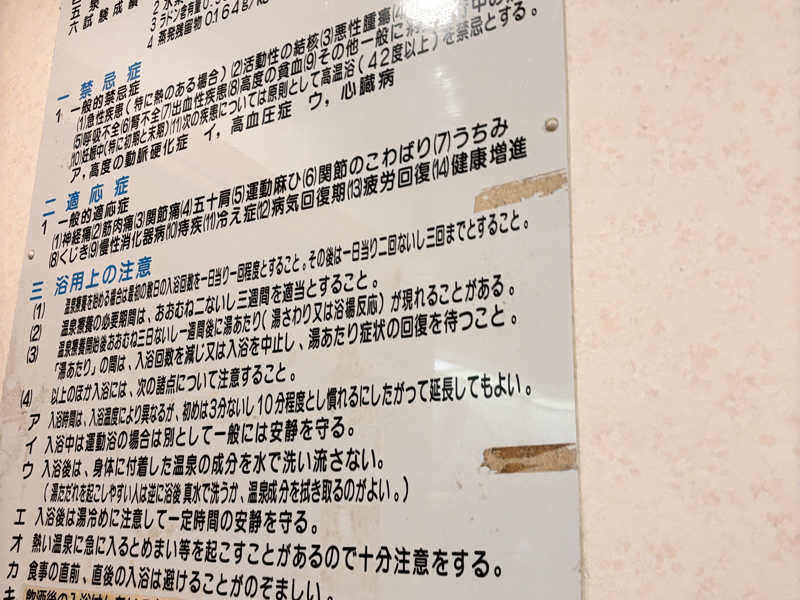 六 試験成績
2 水素
3 ラドン含有量0.
4 蒸発残留物 0.164g/k
一 禁忌症
1 一般的禁忌症
(1)急性疾患(特に熱のある場合)(2)活動性の結核(3)悪性腫瘍
(5)呼吸不全(6)腎不全(7)出血性疾患(8)高度の貧血(9)その他一般に病
(10)妊娠中(特に初期と末期)(11)次の疾患については原則として高温浴(42度以上)を禁忌とする。
ア,高度の動脈硬化症 イ,高血圧症 ウ,心臓病
二 適応症
1 一般的適応症
(1)神経痛(2)筋肉痛(3)関節痛(4)五十肩(5)運動麻ひ(6)関節のこわばり(7)うちみ
(8)くじき(9)慢性消化器病(10)痔疾(11)冷え症(12)病気回復期(13)疲労回復(14)健康増進
三 浴用上の注意
(1) 温泉療養を始める場合は最初の数日の入浴回数を一日当り一回程度とすること。その後は一日当り二回ないし三回までとすること。
(2) 温泉療養の必要期間は、おおむね二ないし三週間を適当とすること。
(3) 温泉療養開始後おおむね三日ないし一週間後に湯あたり(湯さわり又は浴場反応)が現れることがある。
「湯あたり」の間は、入浴回数を減じ又は入浴を中止し、湯あたり症状の回復を待つこと。
(4) 以上のほか入浴には、次の諸点について注意すること。
ア 入浴時間は、入浴温度により異なるが、初めは3分ないし10分程度とし慣れるにしたがって延長してもよい。
イ 入浴中は運動浴の場合は別として一般には安静を守る。
ウ 入浴後は、身体に付着した温泉の成分を水で洗い流さない。
(湯ただれを起こしやすい人は逆に浴後真水で洗うか、温泉成分を拭き取るのがよい。)
エ 入浴後は湯冷めに注意して一定時間の安静を守る。
オ 熱い温泉に急に入るとめまい等を起こすことがあるので十分注意をする。
カ 食事の直前、直後の入浴は避けることがのぞましい。
キ 飲酒後の入浴は